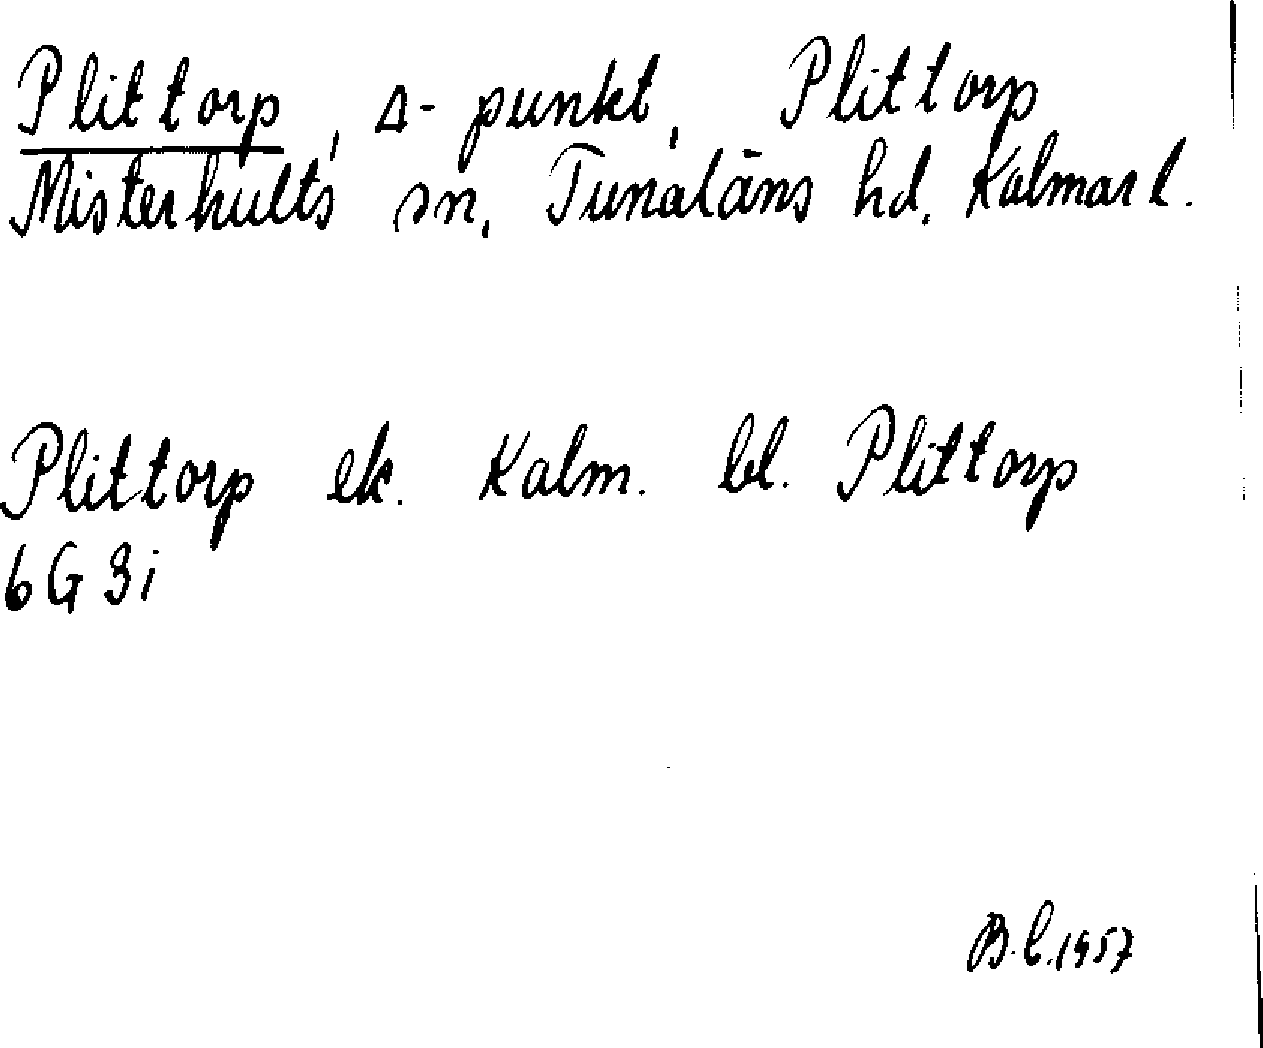 Plittorp, Δ-punkt, Plittorp
Misterhults sn, Tunaläns hd. Kalmar l.
Plittorp ek. Kalm. bl. Plittorp
6G 3i
B.C.1957